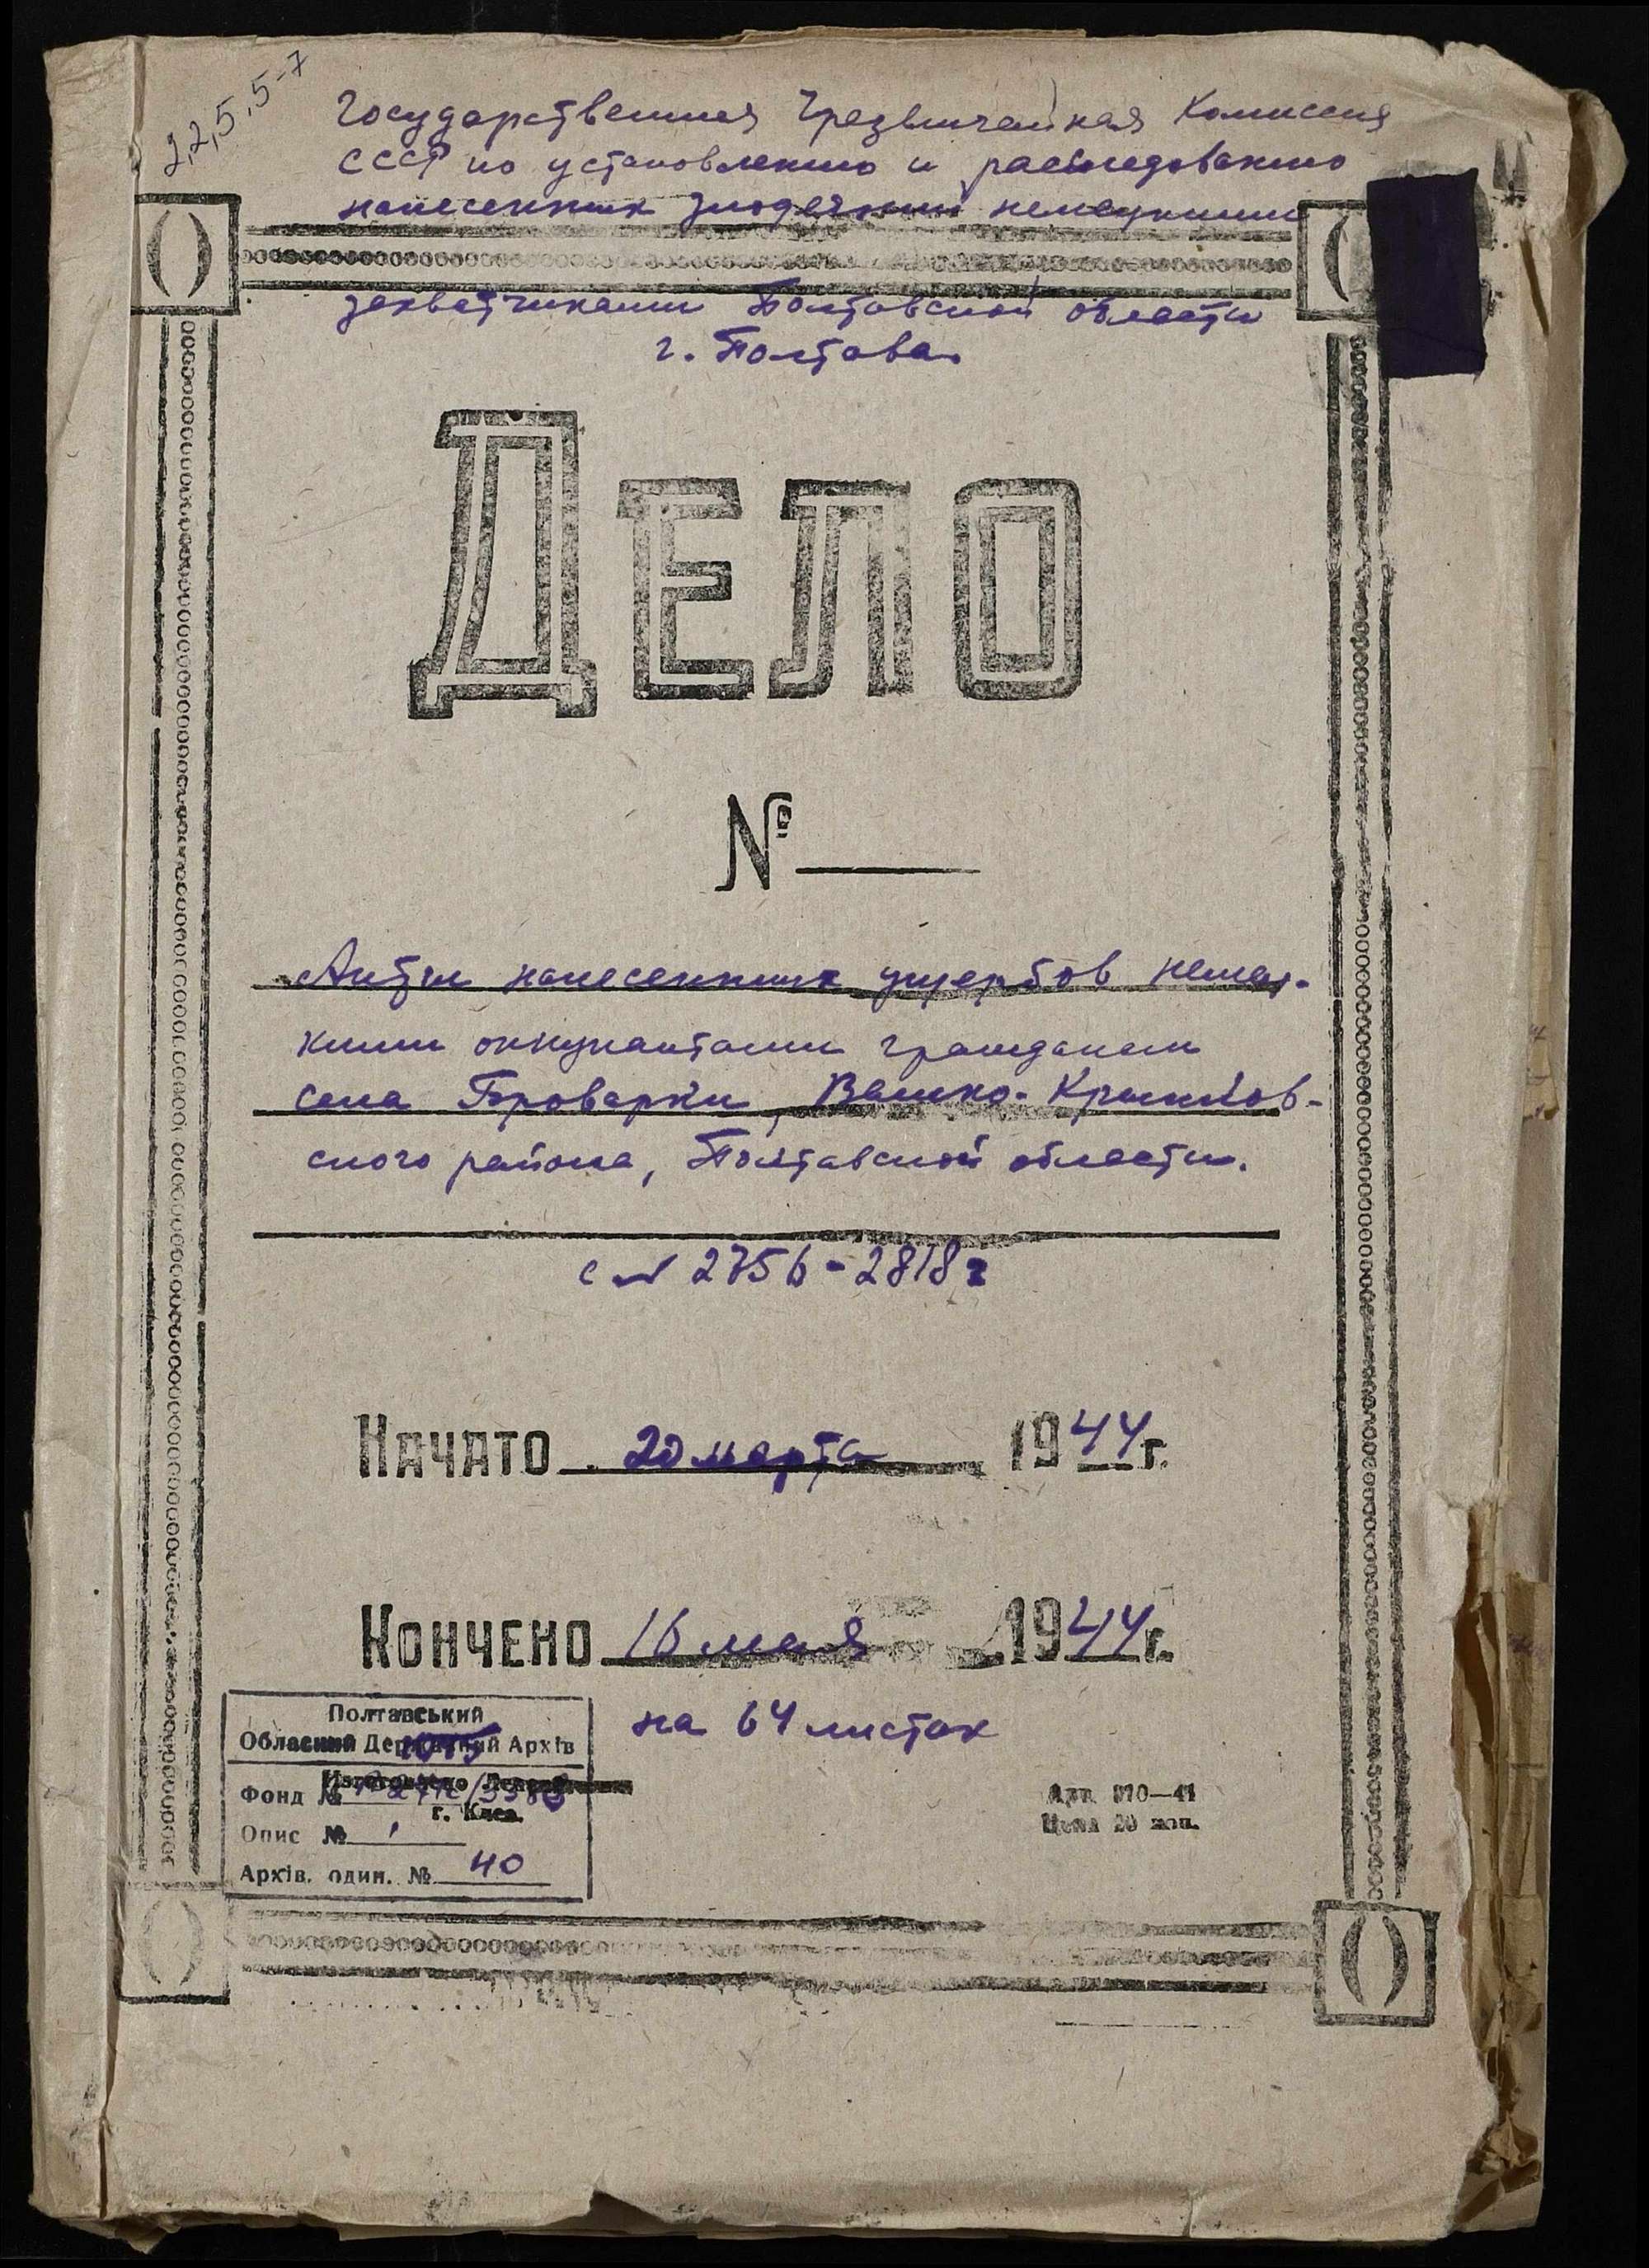 2,2,5,5-7
Государственная Чрезвычайная Комиссия
СССР по установлению и расследованию
нанесенных злодеяний немецкими
захватчиками Полтавской области
г. Полтава
ДЕЛО
№
Акты нанесенных ущербов немец-
кими оккупантами гражданам
села Броварки, Велико-Крынков-
ского района, Полтавской области.
с № 2756-2818
НАЧАТО 20 марта 1944 г.
КОНЧЕНО 16 мая 1944 г.
на 64 листах
Полтавський
Обласний Державний Архів
Фонд №
г.
Опис № 1
Архів. один. № 40
Арт. 310—41
Цена 20 коп.